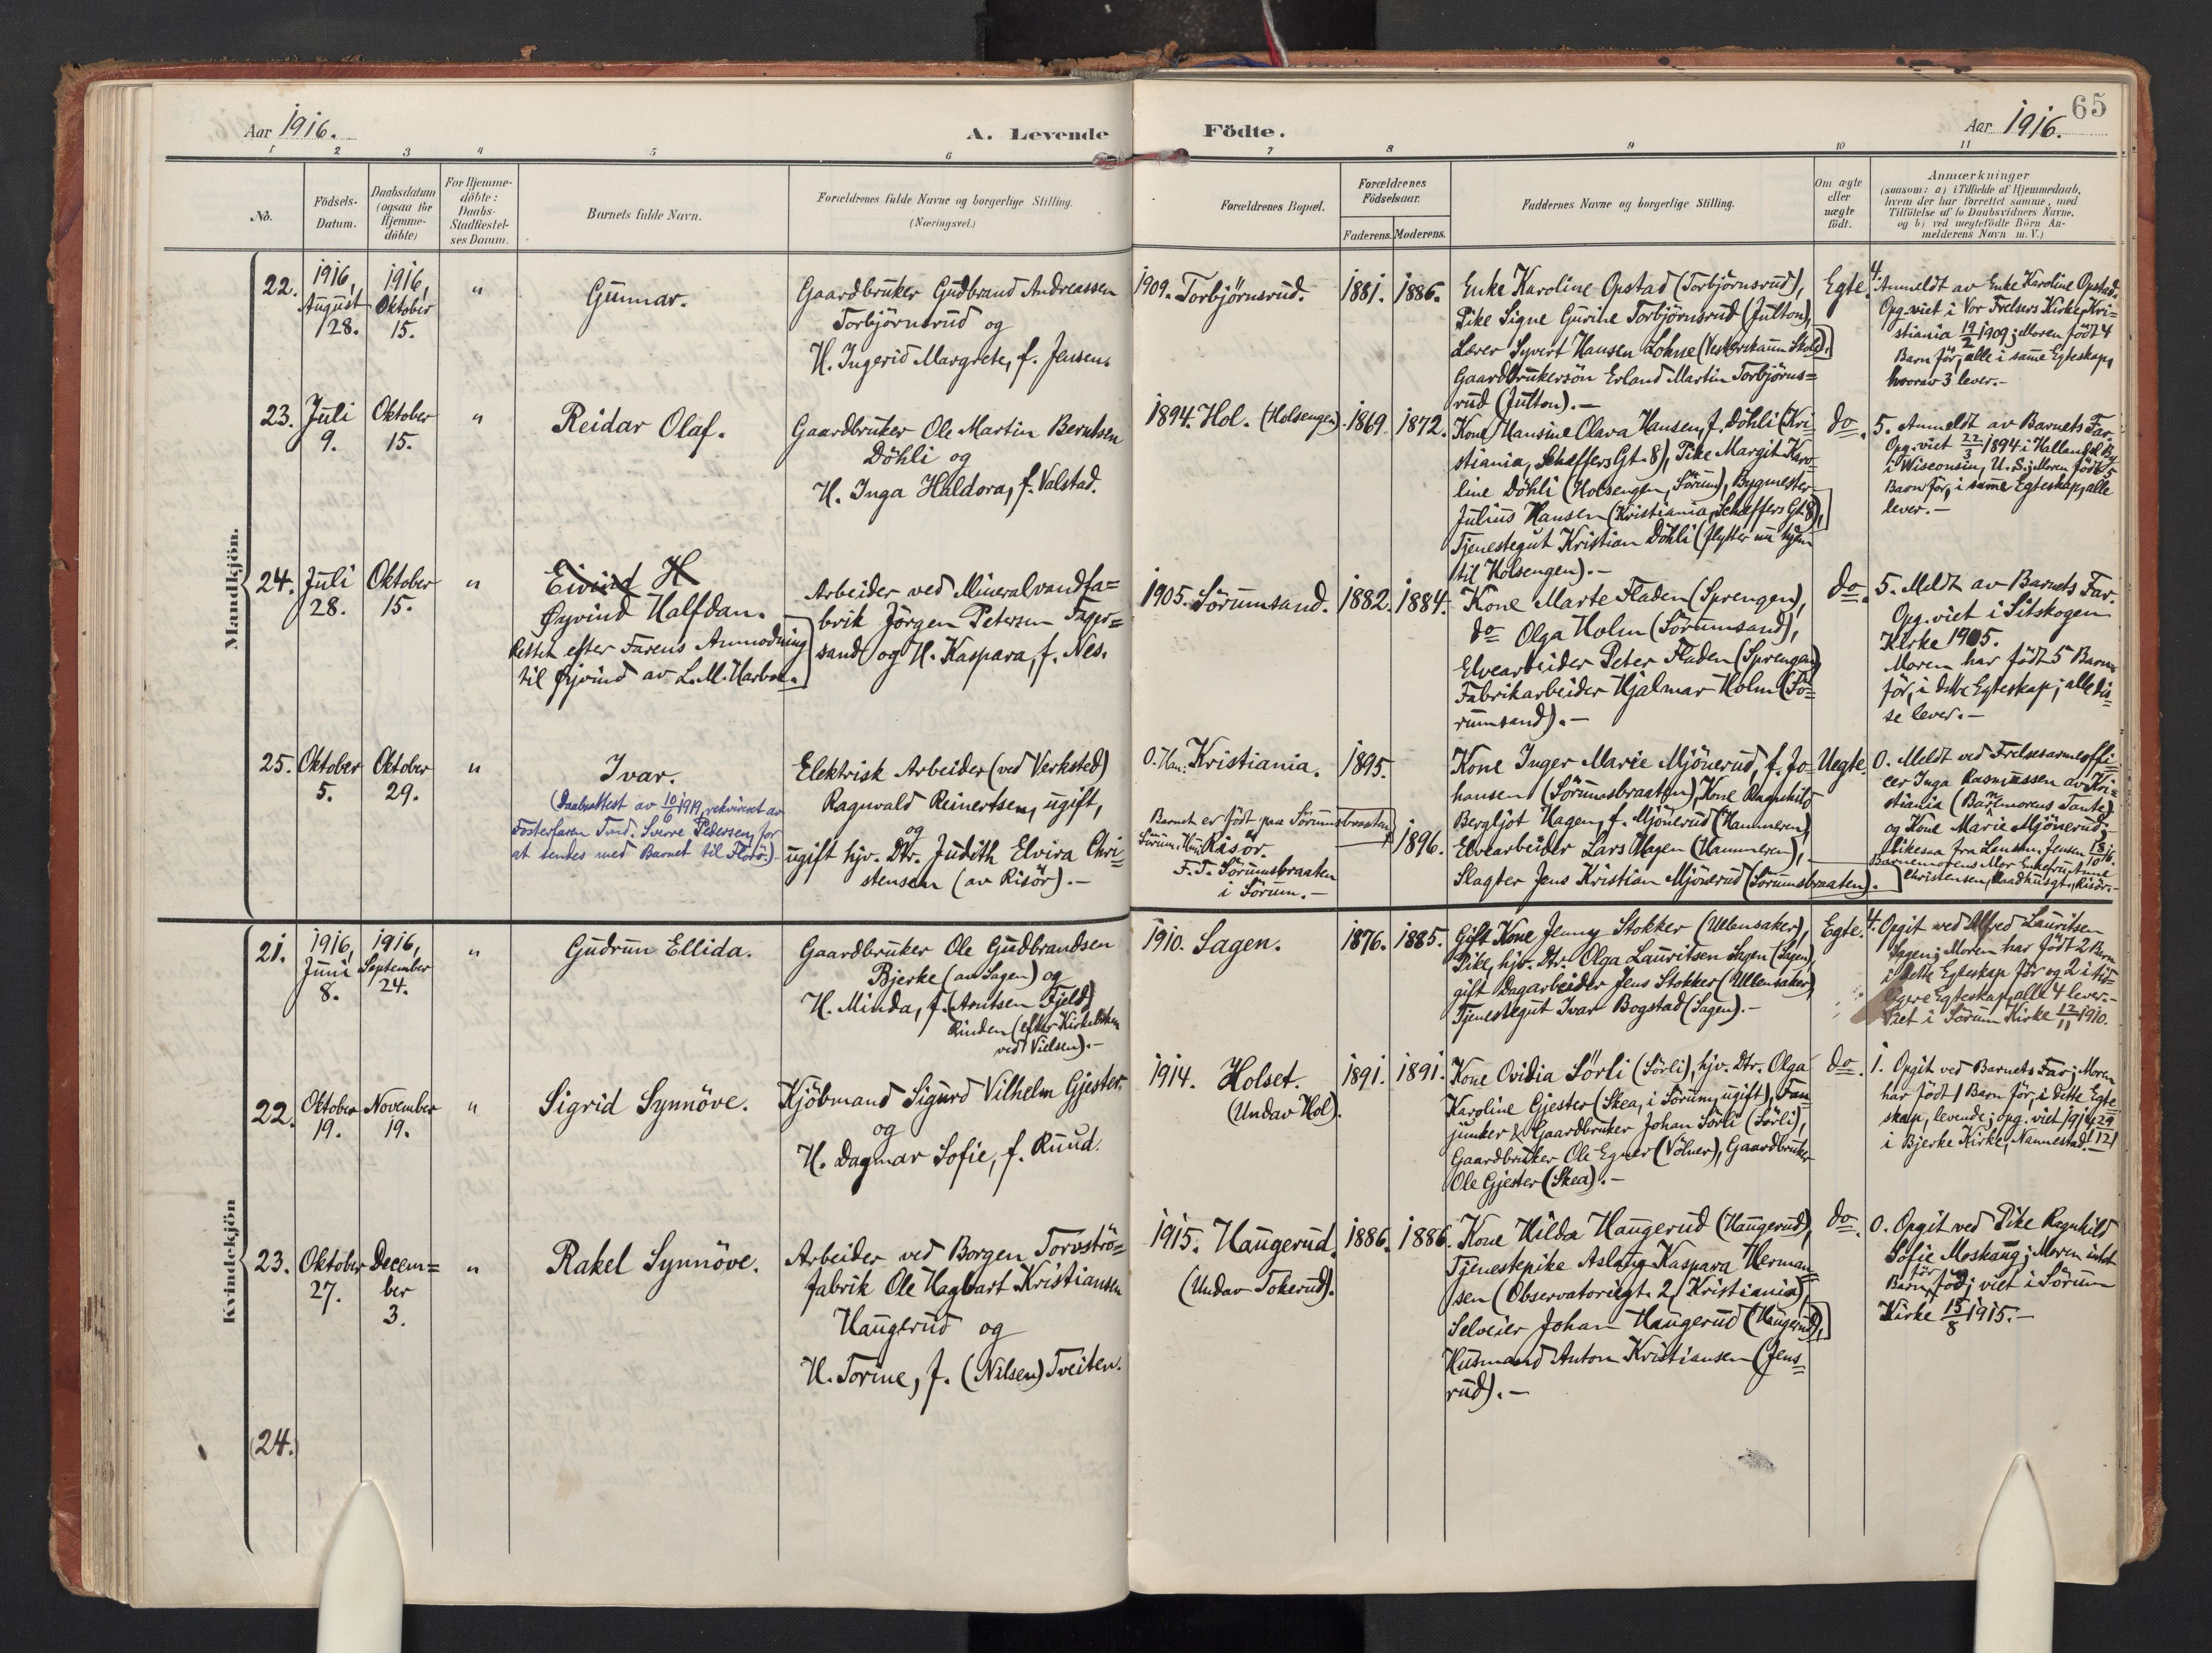 Aar 1916.
A. Levende
Födte.
Aar 1916.
65
1 2 3 4 5 6 7 8 9 10 11
No.
Födsels-
Datum.
Daabsdatum
(ogsaa for
Hjemme-
döbte)
For Hjemme-
döbte:
Daabs-
Stadfæstel-
ses Datum.
Barnets fulde Navn.
Forældrenes fulde Navne og borgerlige Stilling.
(Næringsvei.)
Forældrenes Bopæl.
Forældrenes
Födselsaar.
Faderens.
Moderens.
Faddernes Navne og borgerlige Stilling.
Om ægte
eller
uægte
födt.
Anmærkninger
(saasom: a) i Tilfælde af Hjemmedaab,
hvem der har forrettet samme, med
Tilföielse af to Daabsvidners Navne,
og b) ved uægtefödte Börn An-
melderens Navn m. V.)
Mandkjön.
22.
1916,
August
28.
1916,
Oktober
15.
"
Gunnar.
Gaardbruker Gudbrand Andreassen
Torbjörnsrud og
H. Ingerid Margrete, f. Jensen.
1909. Torbjörnsrud.
1881.
1886.
Enke Karoline Opstad (Torbjörnsrud),
Pike Signe Gurine Torbjörnsrud (Julton),
Lærer Syvert Hansen Lohne (Vesterskaun Skole).
Gaardbrukersön Erland Martin Torbjörns=
rud (Julton).—
Egte.
4. Anmeldt av Enke Karoline Opstad.
Opg. viet i Vor Frelsers Kirke, Kri-
stiania 19/2 1909; Moren födt 4
Barn för, alle i samme Egteskap,
hvorav 3 lever.—
23.
Juli
9.
Oktober
15.
"
Reidar Olaf.
Gaardbruker Ole Martin Berntsen
Döhli og
H. Inga Haldora, f. Valstad.
1894. Hol. (Holsengen).
1869
1872.
Kone Hansine Olava Hansen, f. Döhli (Kri-
stiania, Scheffers Gt. 8), Pike Margit Karo-
line Döhli (Holsengen, Sörum), Bygmester
Julius Hansen (Kristiania, Scheffers Gt. 8),
Tjenestegut Kristian Döhli (flytter nu hjem
til Holsengen).—
do.
5. Anmeldt av Barnets Far.
Opg. viet 22/3 1894 i
i Wisconsin, U. S.; Moren födt 5
Barn för, i samme Egteskap, alle
lever.—
24.
Juli
28.
Oktober
15.
"
Eivind H
Øyvind Halfdan.
Rettet efter Farens Anmodning
til Øyvind av L. M. Harboe.
Arbeider ved Mineralvandfa=
brik Jörgen Petersen Fager=
sand og H. Kaspara, f. Nes.
1905. Sörumsand.
1882.
1884.
Kone Marte Fladen (Sprengen),
do Olga Holm (Sörumsand),
Elvearbeider Peter Fladen (Sprengen)
Fabrikarbeider Hjalmar Holm (Sö=
rumsand).—
do.
5. Meldt av Barnets Far.
Opg. viet i Sitskogen
Kirke 1905.
Moren har födt 5 Barn
för, i dette Egteskap; alle dis=
se lever.—
25.
Oktober
5.
Oktober
29.
"
Ivar.
(Daabsattest av 10/6 1919, rekvireret av
Fosterfaren Sverre Pedersen, for
at sendes med Barnet til Florö.)
Elektrisk Arbeider (ved Verksted)
Ragnvald Reinertsen, ugift,
og
ugift hjv. Dtr. Judith Elvira Chri=
stensen (av Risör).—
0. Han: Kristiania.
Barnet er födt paa Sörumsbraaten,
Sörum. Hun: Risör.
F. T. Sörumsbraaten
i Sörum.—
1895.
1896.
Kone Inger Marie Mjönerud, f. Jo-
hansen (Sörumsbraaten), Kone Ragnhild
Bergljot Hagen, f. Mjönerud (Hammeren),
Elvearbeider Lars Hagen (Hammeren),
Slagter Jens Kristian Mjönerud (Sörumsbraaten).
Uegte.
0. Meldt ved Frelsesarmeoffi=
cer Inga Rasmussen av Kri=
stiania (Barnemorens Tante)
og Kone Marie Mjönerud;
likesaa fra Lensm. Jensen 18/10 16.
Barnemorens Mor Enkefru Anne
Christensen, Raadhusgt., Risör.—
Kvindekjön
21.
1916,
Juni
8.
1916,
September
24.
"
Gudrun Ellida.
Gaardbruker Ole Gudbrandsen
Bjerke (av Sagen) og
H. Minda, f. (Arntsen Fjeld)
Rinden (efter Kirkeboken
ved Vielsen).—
1910. Sagen.
1876.
1885.
Gift Kone Jenny Stokker (Ullensaker),
Pike, hjv. Dtr. Olga Lauritsen Sagen (Sagen),
gift Dagarbeider Jens Stokker (Ullensaker),
Tjenestegut Ivar Bogstad (Sagen).—
Egte.
4. Opgit ved Alfred Lauritsen
Sagen; Moren har födt 2 Barn
i dette Egteskap för og 2 i tid-
ligere Egteskap, alle 4 lever.—
Viet i Sörum Kirke 12/11 1910.
22.
Oktober
19.
November
19.
"
Sigrid Synnöve.
Kjöbmand Sigurd Vilhelm Gjester
og
H. Dagmar Sofie, f. Ruud.
1914. Holset.
(Undav Hol).
1891.
1891.
Kone Ovidia Sörli (Sörli), hjv. Dtr. Olga
Karoline Gjester (Skea, i Sörum, ugift), Fan-
junker & Gaardbruker Johan Sörli (Sörli),
Gaardbruker Ole Egner (Völner), Gaardbruker
Ole Gjester (Skea).—
do.
1. Opgit ved Barnets Far; Moren
har födt 1 Barn för, i dette Egte=
skap, levende; opg. viet 1914 29/12
i Bjerke Kirke, Nannestad.—
23.
Oktober
27.
Decem=
ber
3.
"
Rakel Synnöve.
Arbeider ved Borgen Torvströ=
fabrik Ole Hagbart Kristiansen
Haugerud og
H. Torine, f. (Nilsen) Tveiten.
1915. Haugerud.
(Undav Tokerud).
1886.
1886.
Kone Hilda Haugerud (Haugerud),
Tjenestepike Aslaug Kaspara Herman=
sen (Observatoriegt. 2, Kristiania),
Selveier Johan Haugerud (Haugerud),
Husmand Anton Kristiansen (Jens=
rud).—
do.
0. Opgit ved Pike Ragnhild
Sofie Moskaug; Moren intet
Barn för föd; viet i Sörum
Kirke 15/8 1915.—
(24.)